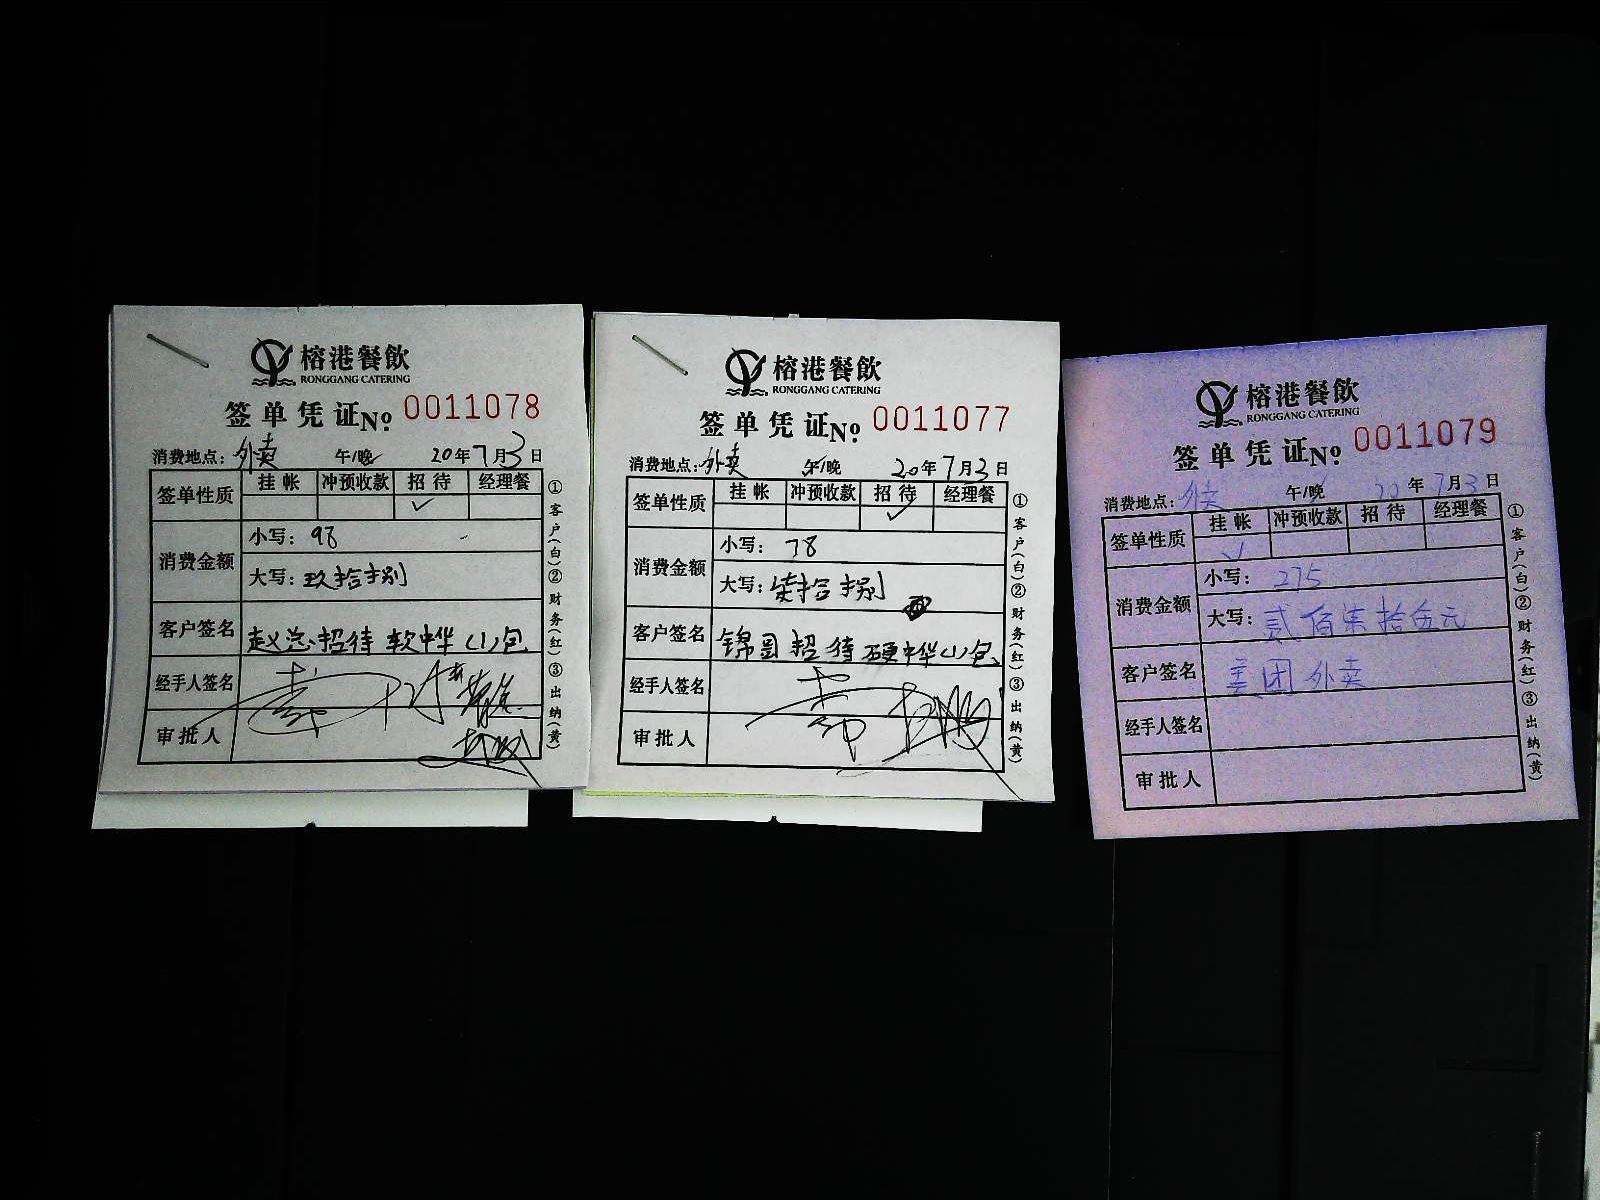 榕港餐飲
RONGGANG CATERING
签单凭证 No 0011078
消费地点：外卖 午/晚 20年7月3日
签单性质 挂帐 冲预收款 招待 经理餐
✓
消费金额 小写：98
大写：玖拾捌
客户签名 赵总招待 软中华(1)包
经手人签名
审批人
①客户(白)②财务(红)③出纳(黄)
榕港餐飲
RONGGANG CATERING
签单凭证 No 0011077
消费地点：外卖 午/晚 20年7月3日
签单性质 挂帐 冲预收款 招待 经理餐
✓
消费金额 小写：78
大写：柒拾捌
客户签名 锦园招待 硬中华(1)包
经手人签名
审批人
①客户(白)②财务(红)③出纳(黄)
榕港餐飲
RONGGANG CATERING
签单凭证 No 0011079
消费地点：外卖 午/晚 20年7月3日
签单性质 挂帐 冲预收款 招待 经理餐
✓
消费金额 小写：275
大写：贰佰柒拾伍元
客户签名 美团外卖
经手人签名
审批人
①客户(白)②财务(红)③出纳(黄)